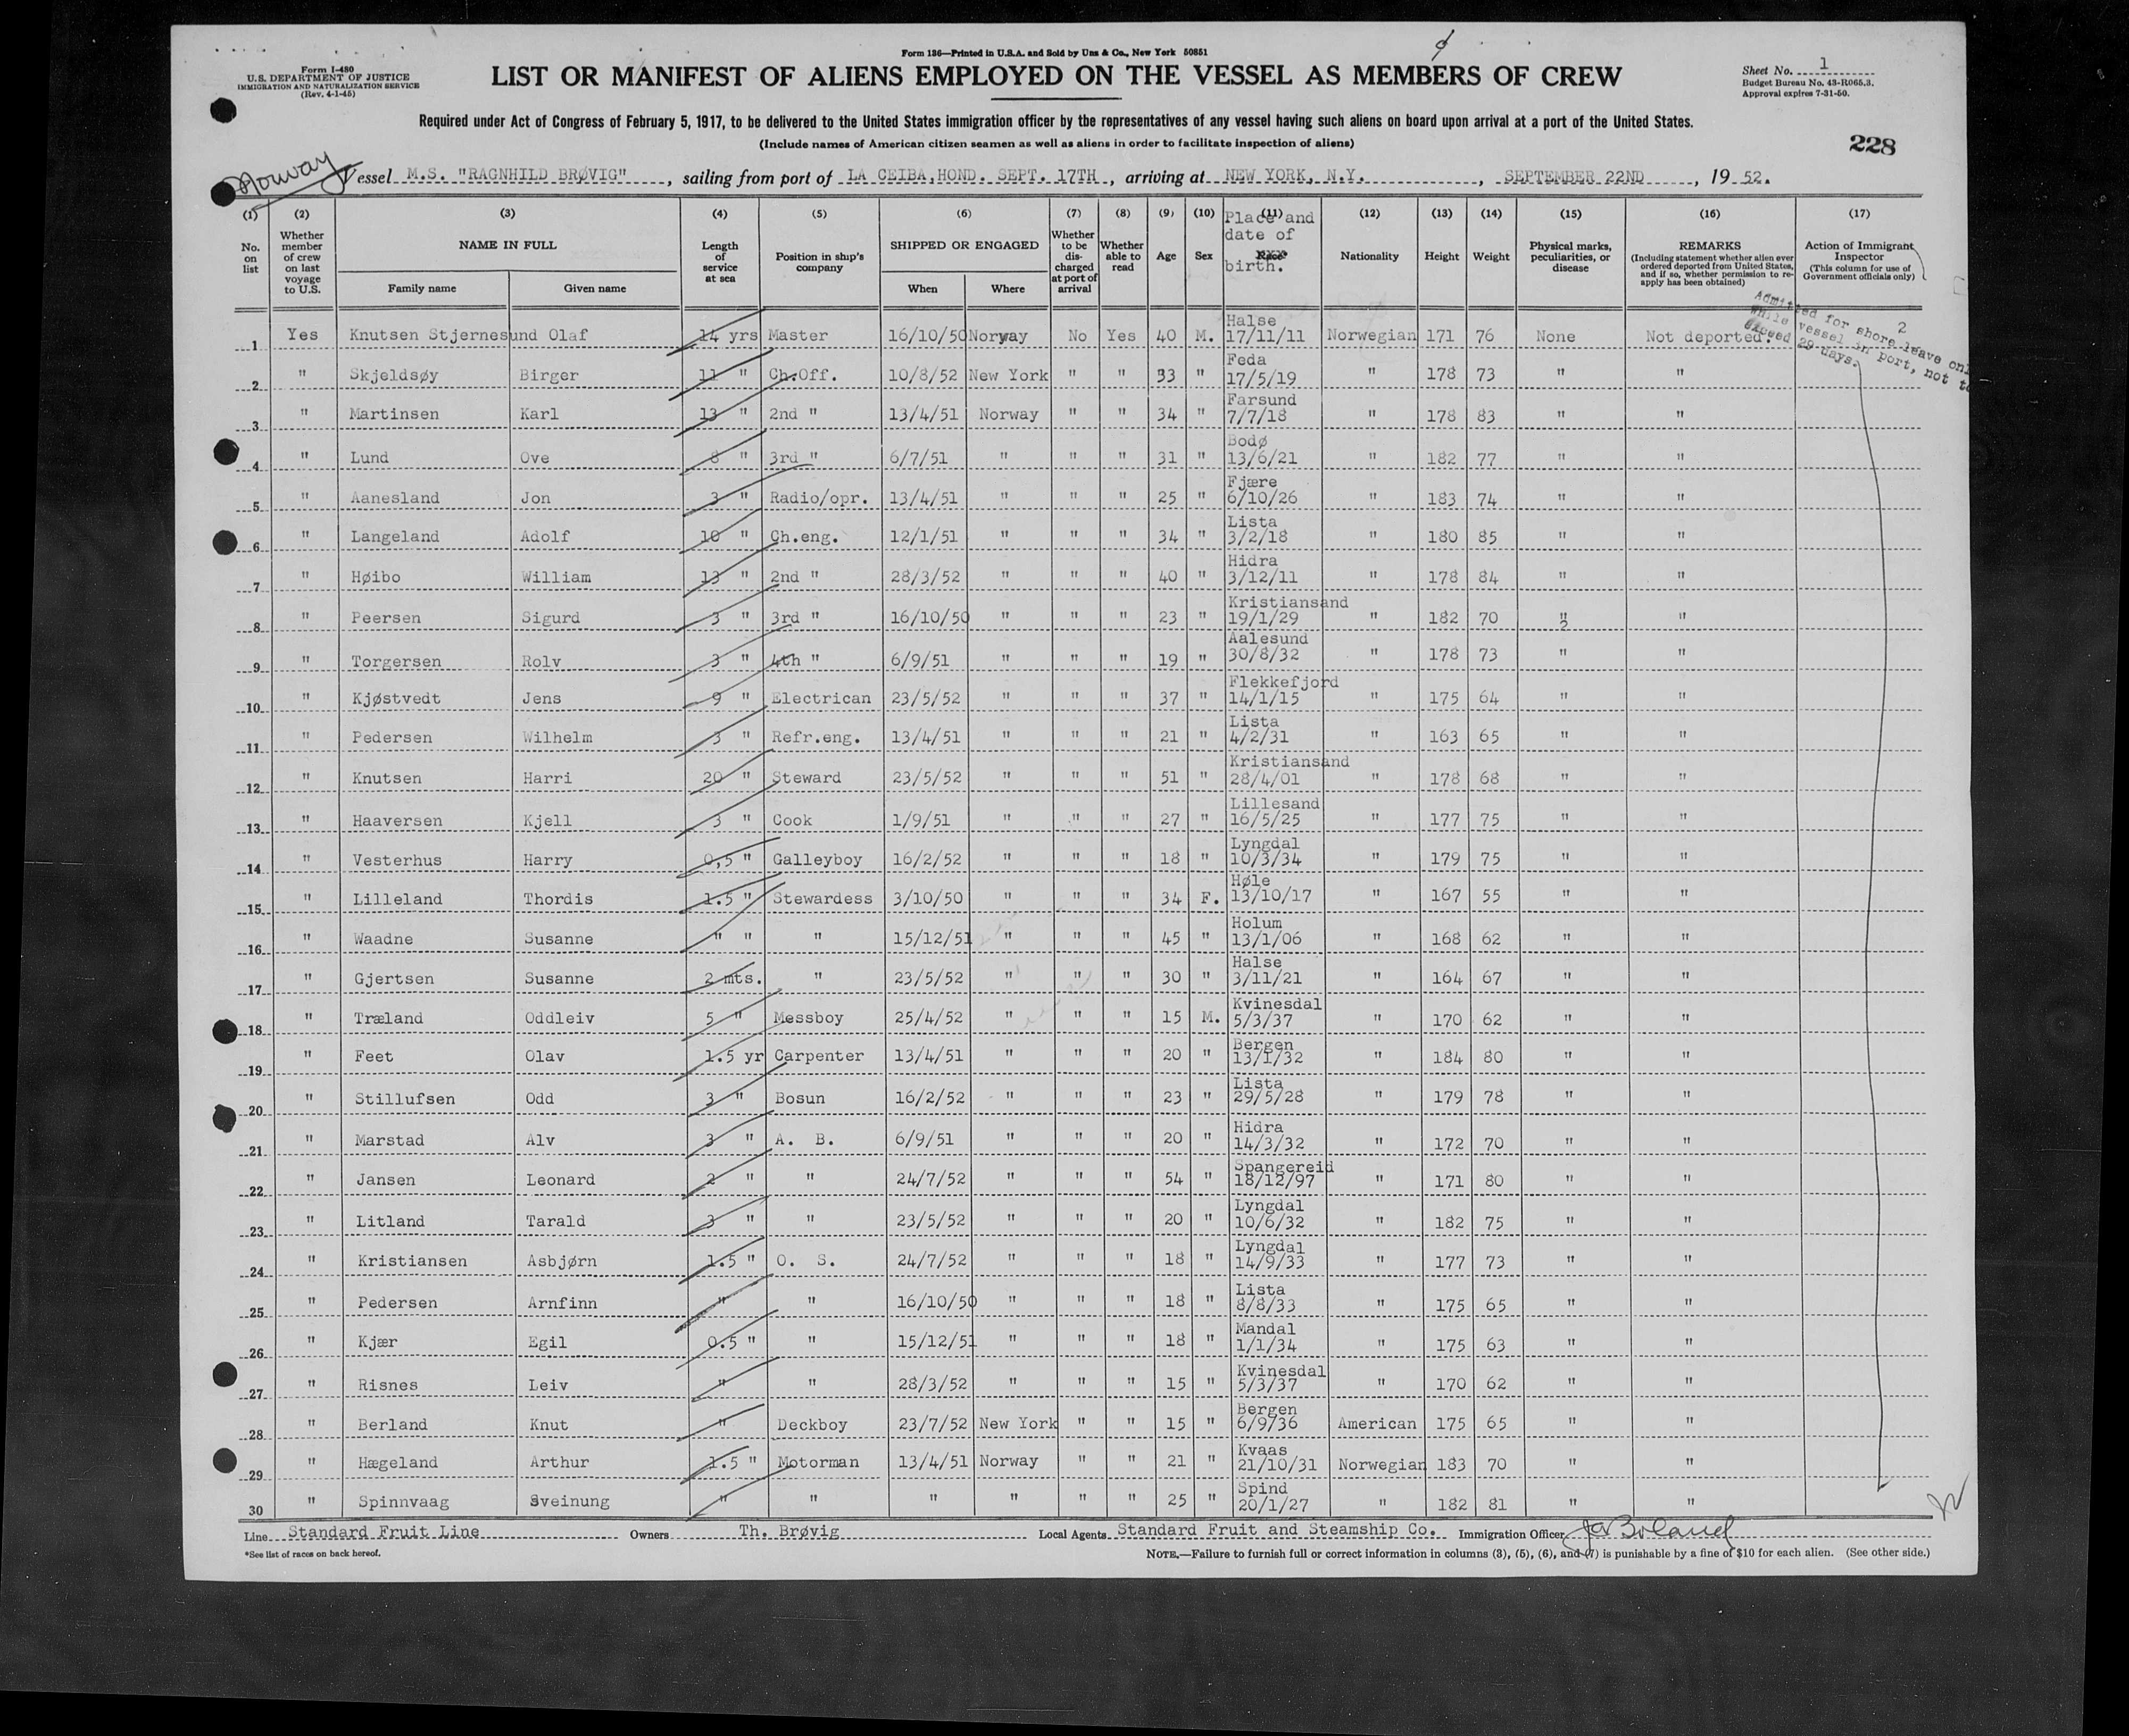 Form 136—Printed in U.S.A. and Sold by Unz & Co., New York 50851
Form I-480
U.S. DEPARTMENT OF JUSTICE
IMMIGRATION AND NATURALIZATION SERVICE
(Rev. 4-1-45)
LIST OR MANIFEST OF ALIENS EMPLOYED ON THE VESSEL AS MEMBERS OF CREW
Sheet No. 1
Budget Bureau No. 43-R065.3.
Approval expires 7-31-50.
Required under Act of Congress of February 5, 1917, to be delivered to the United States immigration officer by the representatives of any vessel having such aliens on board upon arrival at a port of the United States.
(Include names of American citizen seamen as well as aliens in order to facilitate inspection of aliens)
228
Norway
Vessel M.S. "RAGNHILD BRØVIG", sailing from port of LA CEIBA, HOND. SEPT. 17TH, arriving at NEW YORK, N.Y., SEPTEMBER 22ND, 19 52.
(1) No. on list (2) Whether member of crew on last voyage to U.S. (3) NAME IN FULL Family name Given name (4) Length of service at sea (5) Position in ship's company (6) SHIPPED OR ENGAGED When Where (7) Whether to be discharged at port of arrival (8) Whether able to read (9) Age (10) Sex (11) Place and date of Race birth. (12) Nationality (13) Height (14) Weight (15) Physical marks, peculiarities, or disease (16) REMARKS (Including statement whether alien ever ordered deported from United States, and if so, whether permission to re-apply has been obtained) (17) Action of Immigrant Inspector (This column for use of Government officials only)
Admitted for shore leave only
while vessel in port, not to
exceed 29 days.
2
1 Yes Knutsen Stjernesund Olaf 14 yrs Master 16/10/50 Norway No Yes 40 M. Halse 17/11/11 Norwegian 171 76 None Not deported.
2 " Skjeldsøy Birger 11 " Ch.Off. 10/8/52 New York " " 33 " Feda 17/5/19 " 178 73 " "
3 " Martinsen Karl 13 " 2nd " 13/4/51 Norway " " 34 " Farsund 7/7/18 " 178 83 " "
4 " Lund Ove 8 " 3rd " 6/7/51 " " " 31 " Bodø 13/6/21 " 182 77 " "
5 " Aanesland Jon 3 " Radio/opr. 13/4/51 " " " 25 " Fjære 6/10/26 " 183 74 " "
6 " Langeland Adolf 10 " Ch.eng. 12/1/51 " " " 34 " Lista 3/2/18 " 180 85 " "
7 " Høibo William 13 " 2nd " 28/3/52 " " " 40 " Hidra 3/12/11 " 178 84 " "
8 " Peersen Sigurd 3 " 3rd " 16/10/50 " " " 23 " Kristiansand 19/1/29 " 182 70 " "
9 " Torgersen Rolv 3 " 4th " 6/9/51 " " " 19 " Aalesund 30/8/32 " 178 73 " "
10 " Kjøstvedt Jens 9 " Electrican 23/5/52 " " " 37 " Flekkefjord 14/1/15 " 175 64 " "
11 " Pedersen Wilhelm 3 " Refr.eng. 13/4/51 " " " 21 " Lista 4/2/31 " 163 65 " "
12 " Knutsen Harri 20 " Steward 23/5/52 " " " 51 " Kristiansand 28/4/01 " 178 68 " "
13 " Haaversen Kjell 3 " Cook 1/9/51 " " " 27 " Lillesand 16/5/25 " 177 75 " "
14 " Vesterhus Harry 0,5 " Galleyboy 16/2/52 " " " 18 " Lyngdal 10/3/34 " 179 75 " "
15 " Lilleland Thordis 1.5 " Stewardess 3/10/50 " " " 34 F. Høle 13/10/17 " 167 55 " "
16 " Waadne Susanne " " " 15/12/51 " " " 45 " Holum 13/1/06 " 168 62 " "
17 " Gjertsen Susanne 2 mts. " 23/5/52 " " " 30 " Halse 3/11/21 " 164 67 " "
18 " Træland Oddleiv 5 " Messboy 25/4/52 " " " 15 M. Kvinesdal 5/3/37 " 170 62 " "
19 " Feet Olav 1.5 yr Carpenter 13/4/51 " " " 20 " Bergen 13/1/32 " 184 80 " "
20 " Stillufsen Odd 3 " Bosun 16/2/52 " " " 23 " Lista 29/5/28 " 179 78 " "
21 " Marstad Alv 3 " A. B. 6/9/51 " " " 20 " Hidra 14/3/32 " 172 70 " "
22 " Jansen Leonard 2 " " 24/7/52 " " " 54 " Spangereid 18/12/97 " 171 80 " "
23 " Litland Tarald 3 " " 23/5/52 " " " 20 " Lyngdal 10/6/32 " 182 75 " "
24 " Kristiansen Asbjørn 1.5 " O. S. 24/7/52 " " " 18 " Lyngdal 14/9/33 " 177 73 " "
25 " Pedersen Arnfinn " " 16/10/50 " " " 18 " Lista 8/8/33 " 175 65 " "
26 " Kjær Egil 0.5 " " 15/12/51 " " " 18 " Mandal 1/1/34 " 175 63 " "
27 " Risnes Leiv " " 28/3/52 " " " 15 " Kvinesdal 5/3/37 " 170 62 " "
28 " Berland Knut " Deckboy 23/7/52 New York " " 15 " Bergen 6/9/36 American 175 65 " "
29 " Hægeland Arthur 1.5 " Motorman 13/4/51 Norway " " 21 " Kvaas 21/10/31 Norwegian 183 70 " "
30 " Spinnvaag Sveinung " " " " " " 25 " Spind 20/1/27 " 182 81 " "
Line Standard Fruit Line Owners Th. Brøvig Local Agents Standard Fruit and Steamship Co. Immigration Officer
*See list of races on back hereof.
NOTE.—Failure to furnish full or correct information in columns (3), (5), (6), and (7) is punishable by a fine of $10 for each alien. (See other side.)